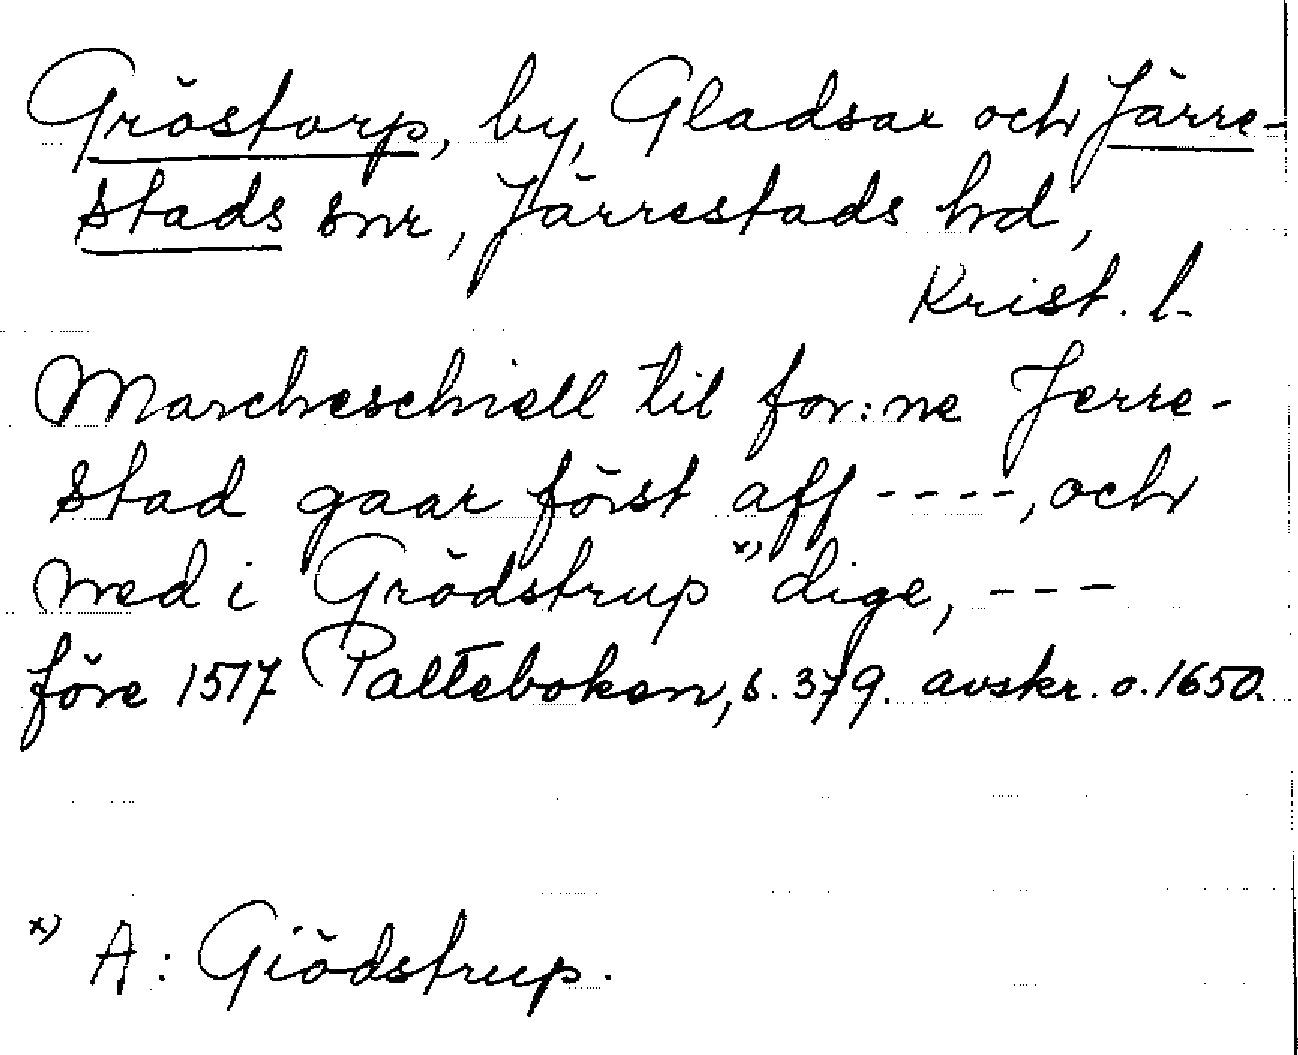 Gröstorp, by, Gladsax och Järre-
stads snr, Järrestads hd,
Krist. l.
Marcheschiell til for:ne Jerre-
stad gaar först aff ----, och
ned i Grödstrup x) dige, ---
före 1517 Palteboken, s. 379. avskr. o. 1650.
x) A: Giödstrup.